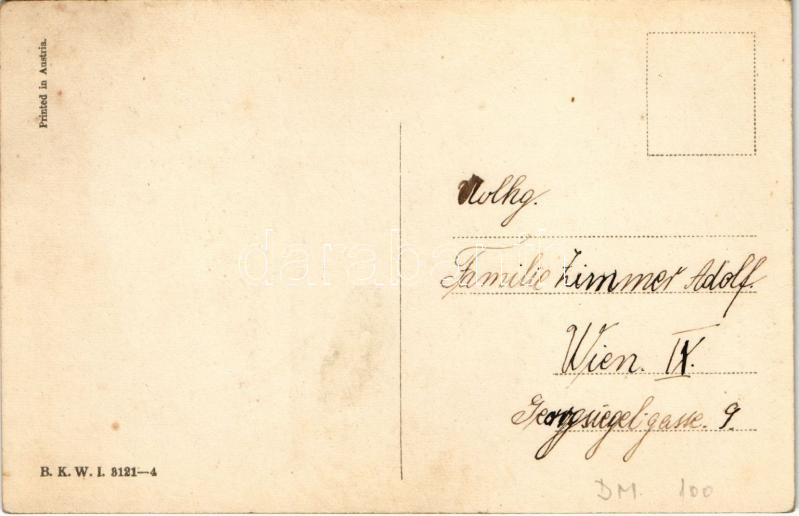 Printed in Austria.
Familie Zimmer Adolf.
Wien. IX.
gasse. 9.
B. K. W. I. 3121—4
DM. 100
darabanth